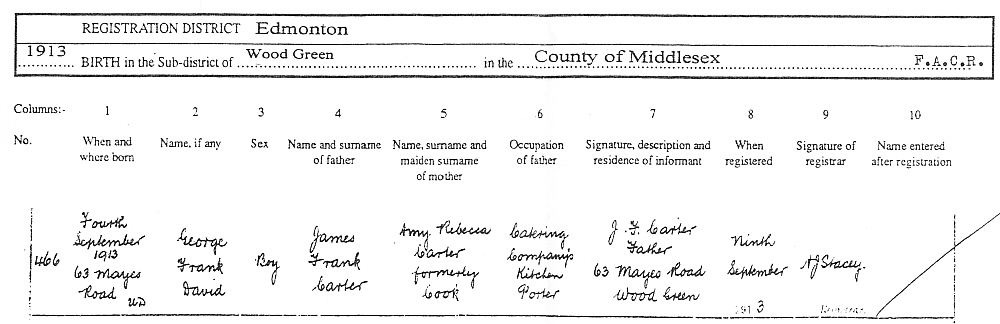 REGISTRATION DISTRICT Edmonton
1913 BIRTH in the Sub-district of Wood Green in the County of Middlesex F.A.C.R.
Columns:- 1 2 3 4 5 6 7 8 9 10
No. When and where born Name, if any Sex Name and surname of father Name, surname and maiden surname of mother Occupation of father Signature, description and residence of informant When registered Signature of registrar Name entered after registration
466
Fourth
September
1913
63 Mayes
Road UD
George
Frank
David
Boy
James
Frank
Carter
Amy Rebecca
Carter
formerly
Cook
Catering
Company's
Kitchen
Porter
J. F. Carter
Father
63 Mayes Road
Wood Green
Ninth
September
1913
Stacey.
Registrar.